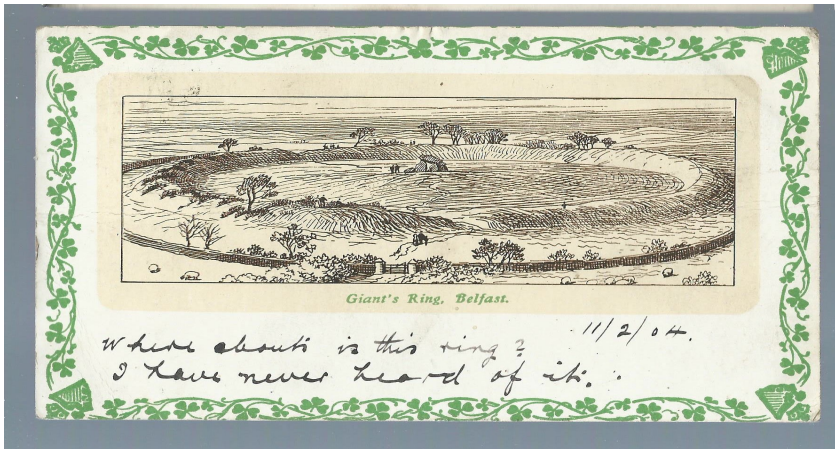 Giant's Ring, Belfast.
11/2/04.
Where abouts is this ring?
I have never heard of it.